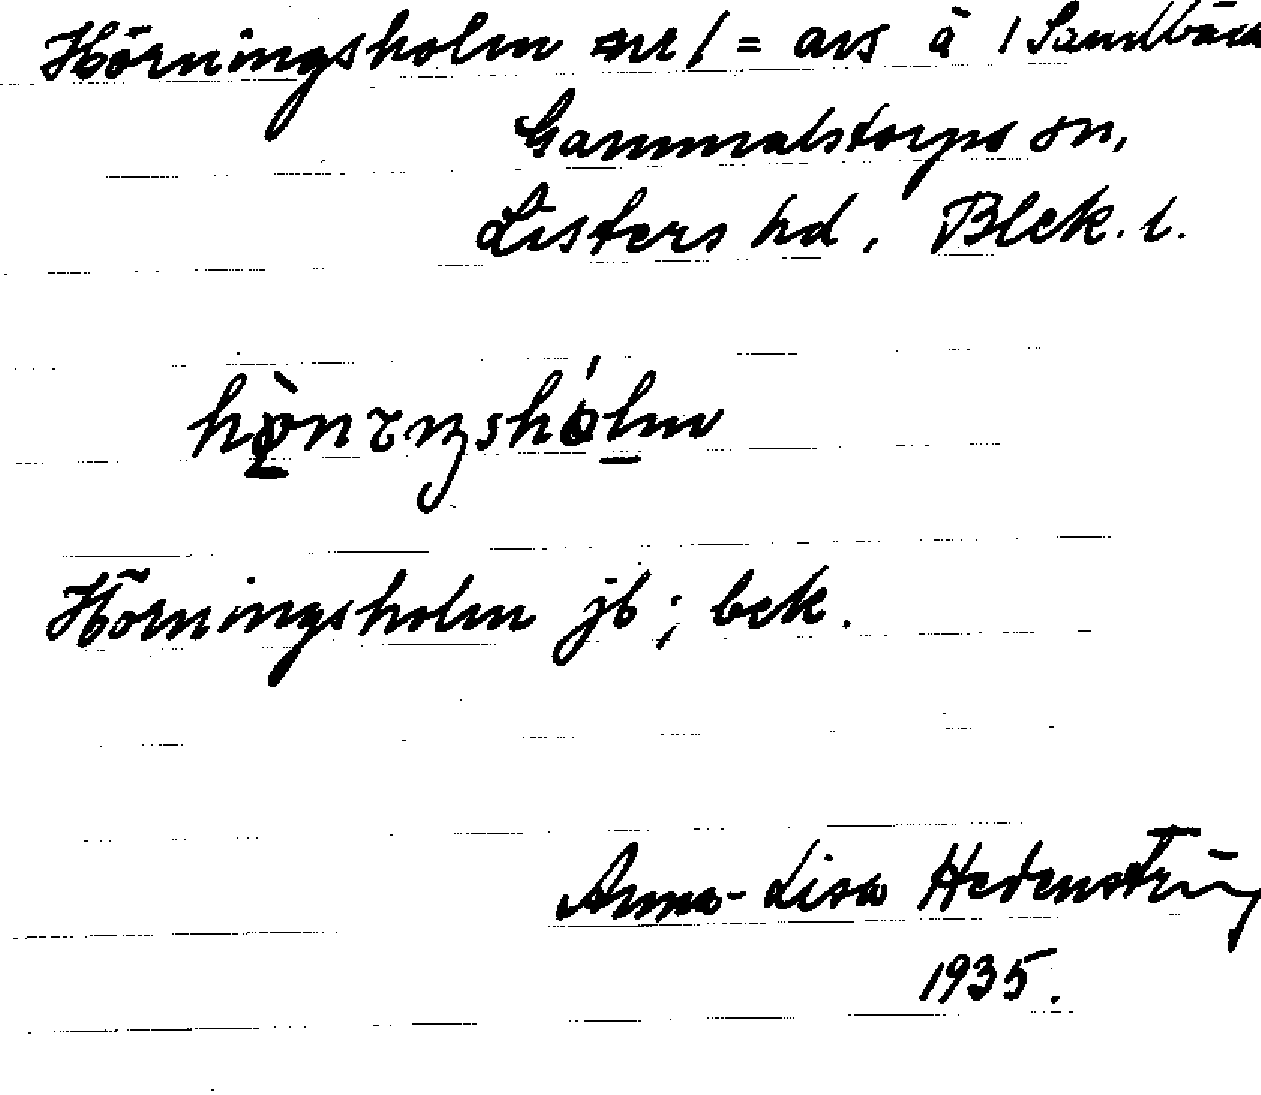 Hörningsholm nr 1 = avs å 1 Sandbäck
Gammalstorps sn,
Listers hd, Blek. l.
Hörningsholm jb; bek.
Anna-Lisa Hedenström
1935.